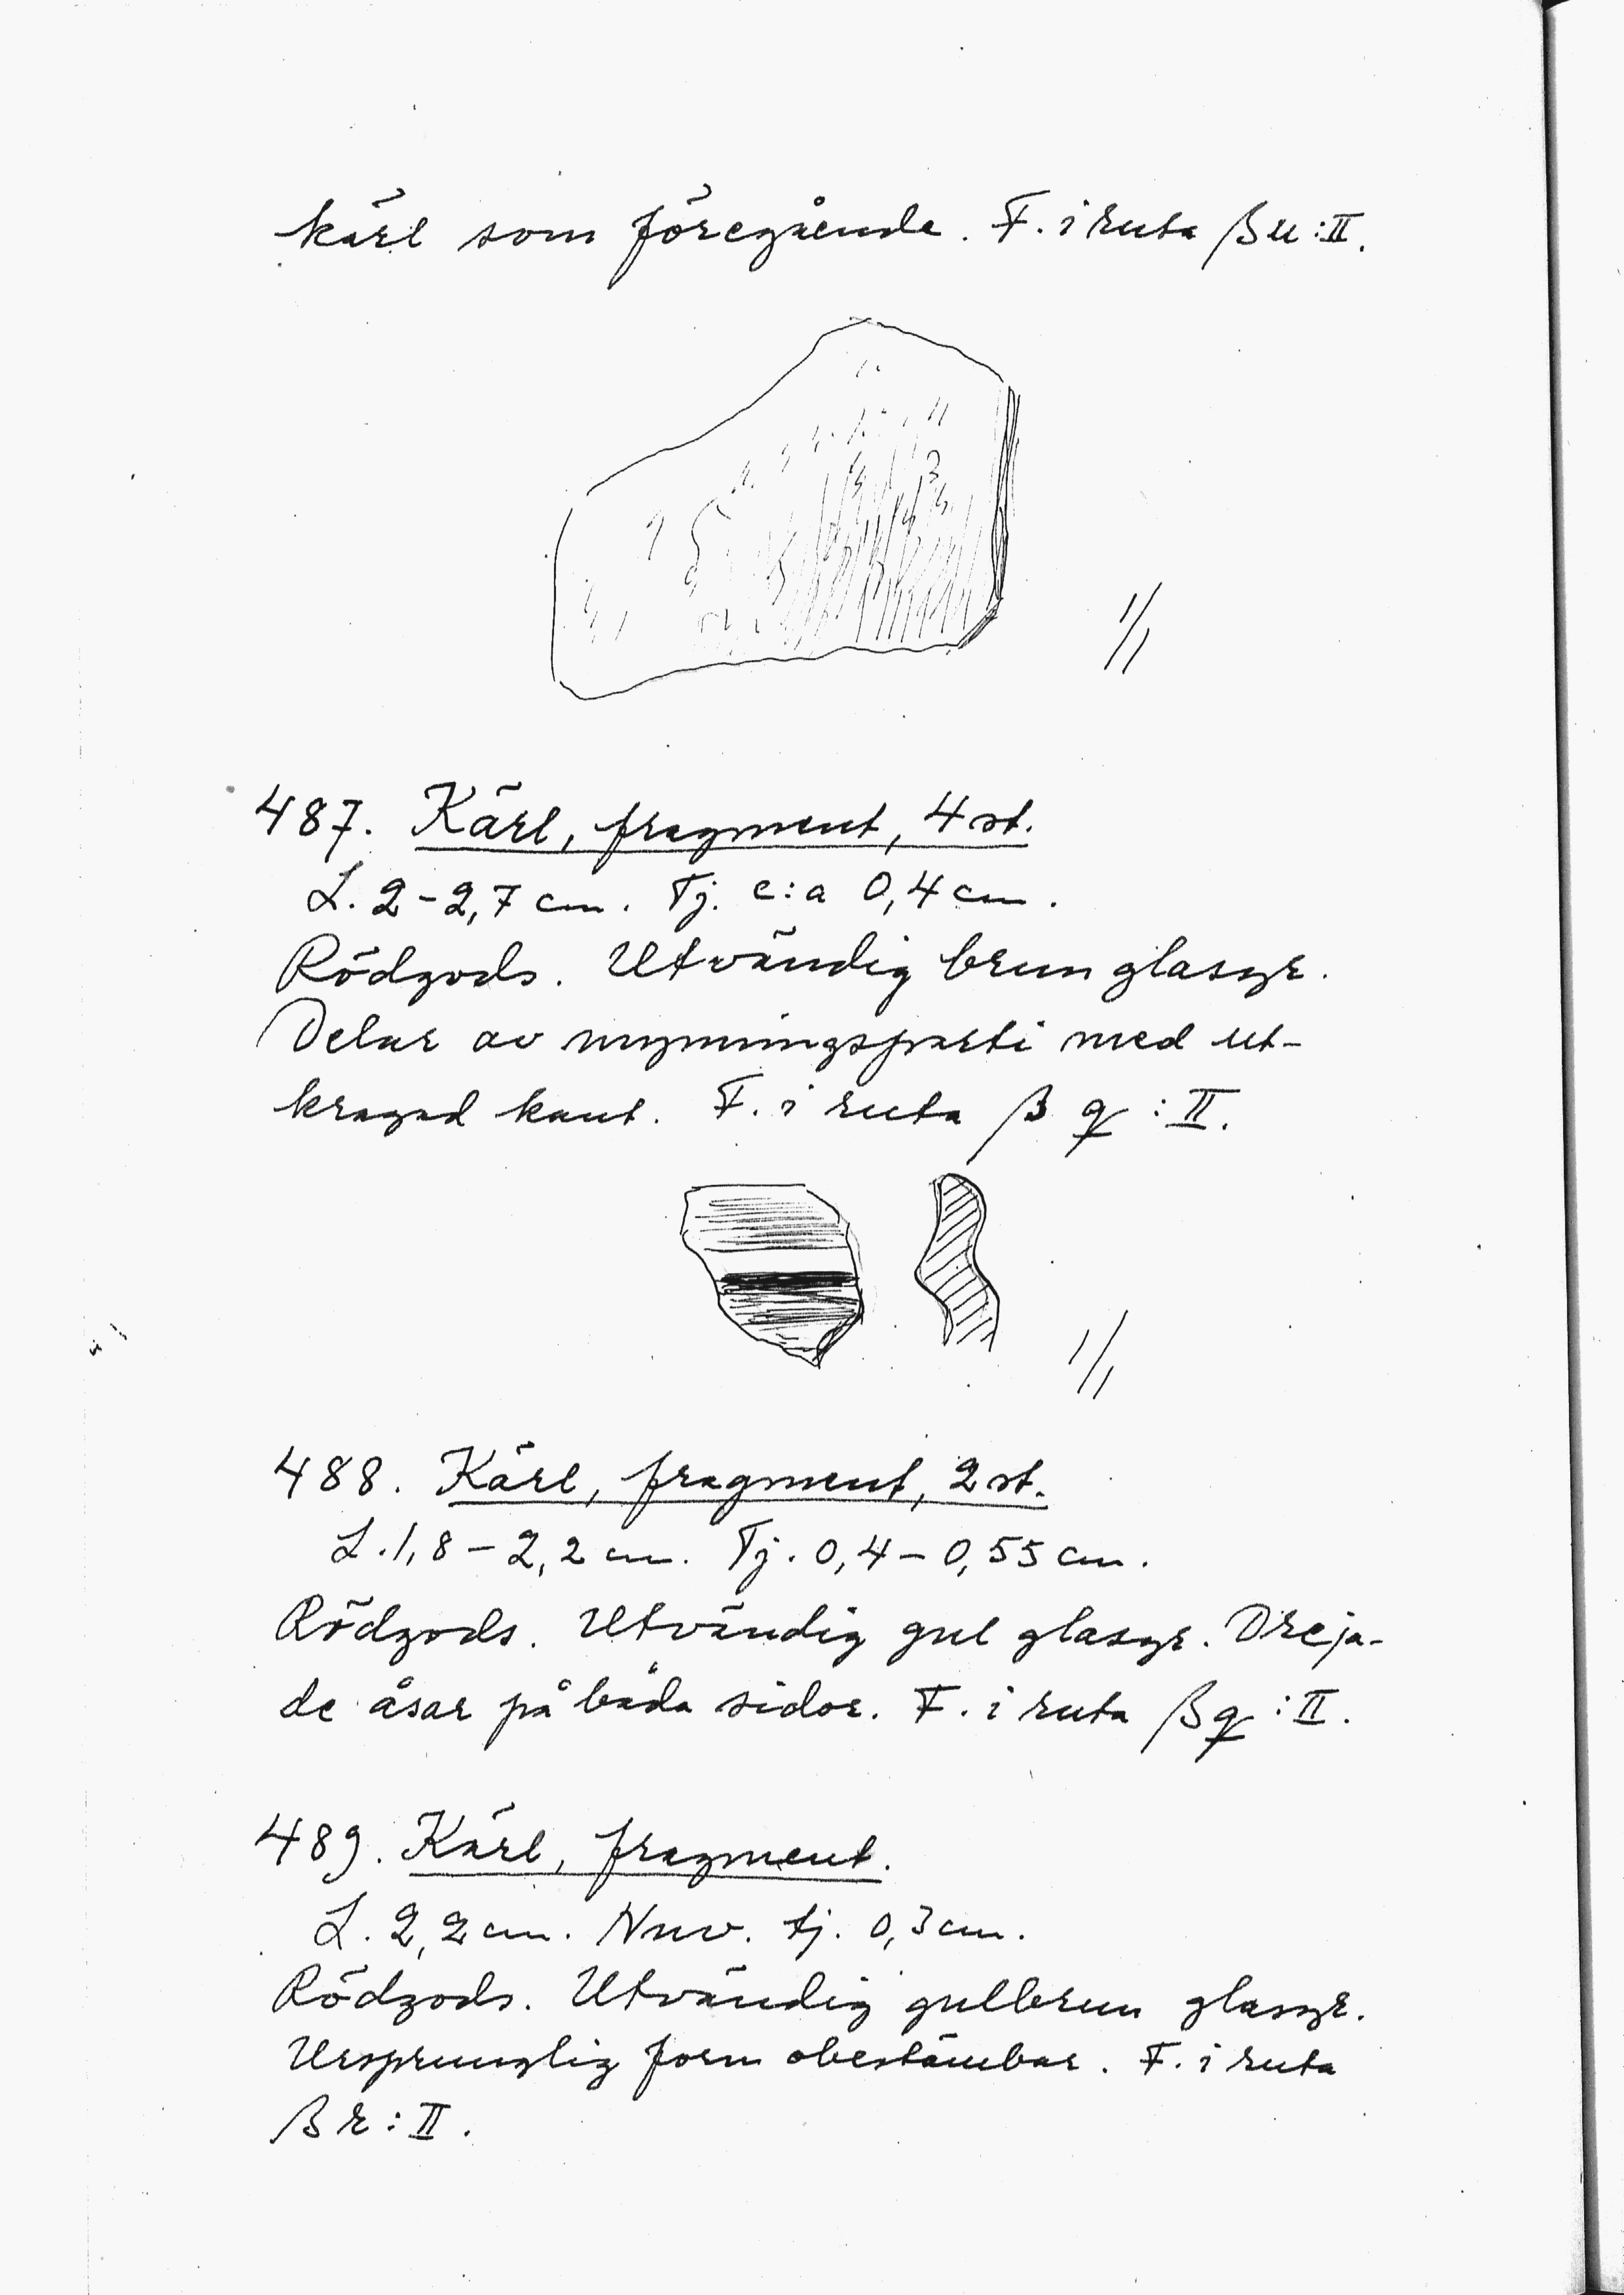 kärl som föregående. F. i ruta βu:II.
1/1
487. Kärl, fragment, 4 st.
L. 2-2,7 cm. Tj. c:a 0,4 cm.
Rödgods. Utvändig brun glasyr.
Delar av mynningsparti med ut-
kragad kant. F. i ruta β q : II.
1/1
488. Kärl, fragment, 2 st.
L. 1,8 - 2,2 cm. Tj. 0,4 - 0,55 cm.
Rödgods. Utvändig gul glasyr. Dreja-
de åsar på båda sidor. F. i ruta βq : II.
489. Kärl, fragment.
L. 2,2 cm. Nuv. tj. 0,3 cm.
Rödgods. Utvändig gulbrun glasyr.
Ursprunglig form obestämbar. F. i ruta
βr : II.